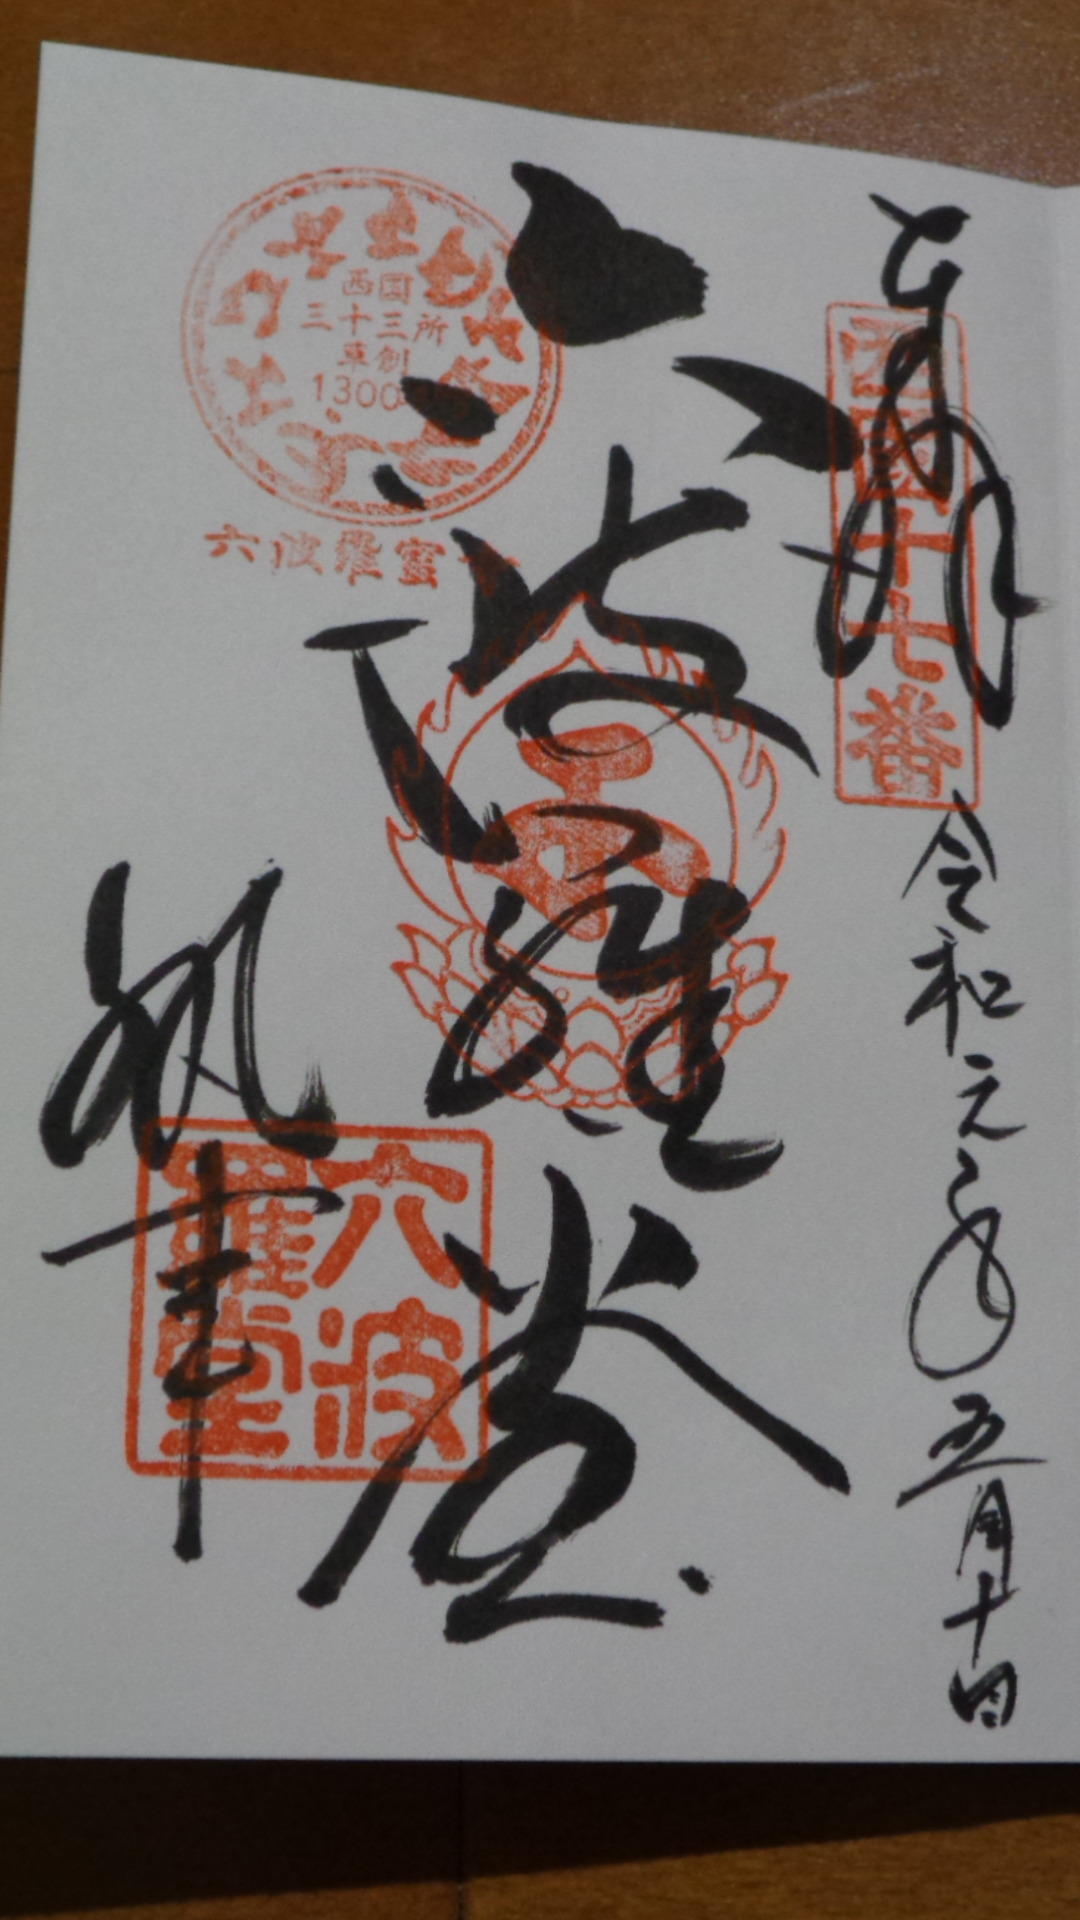 奉拝
西国十七番
令和元年五月十日
六波羅堂
西国
三十三所
草創
1300
六波羅蜜
六波
羅堂
執事